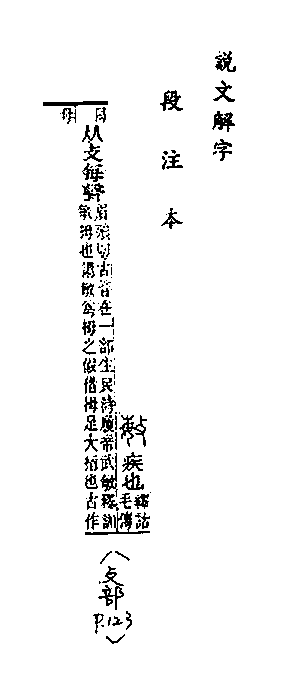 說文解字
段注本
敏
疾也
釋詁
毛傳
从攴每聲
眉殞切古音在一部生民詩履帝武敏釋訓
敏拇也謂敏爲拇之假借拇足大指也古作
(攴部
P.123)